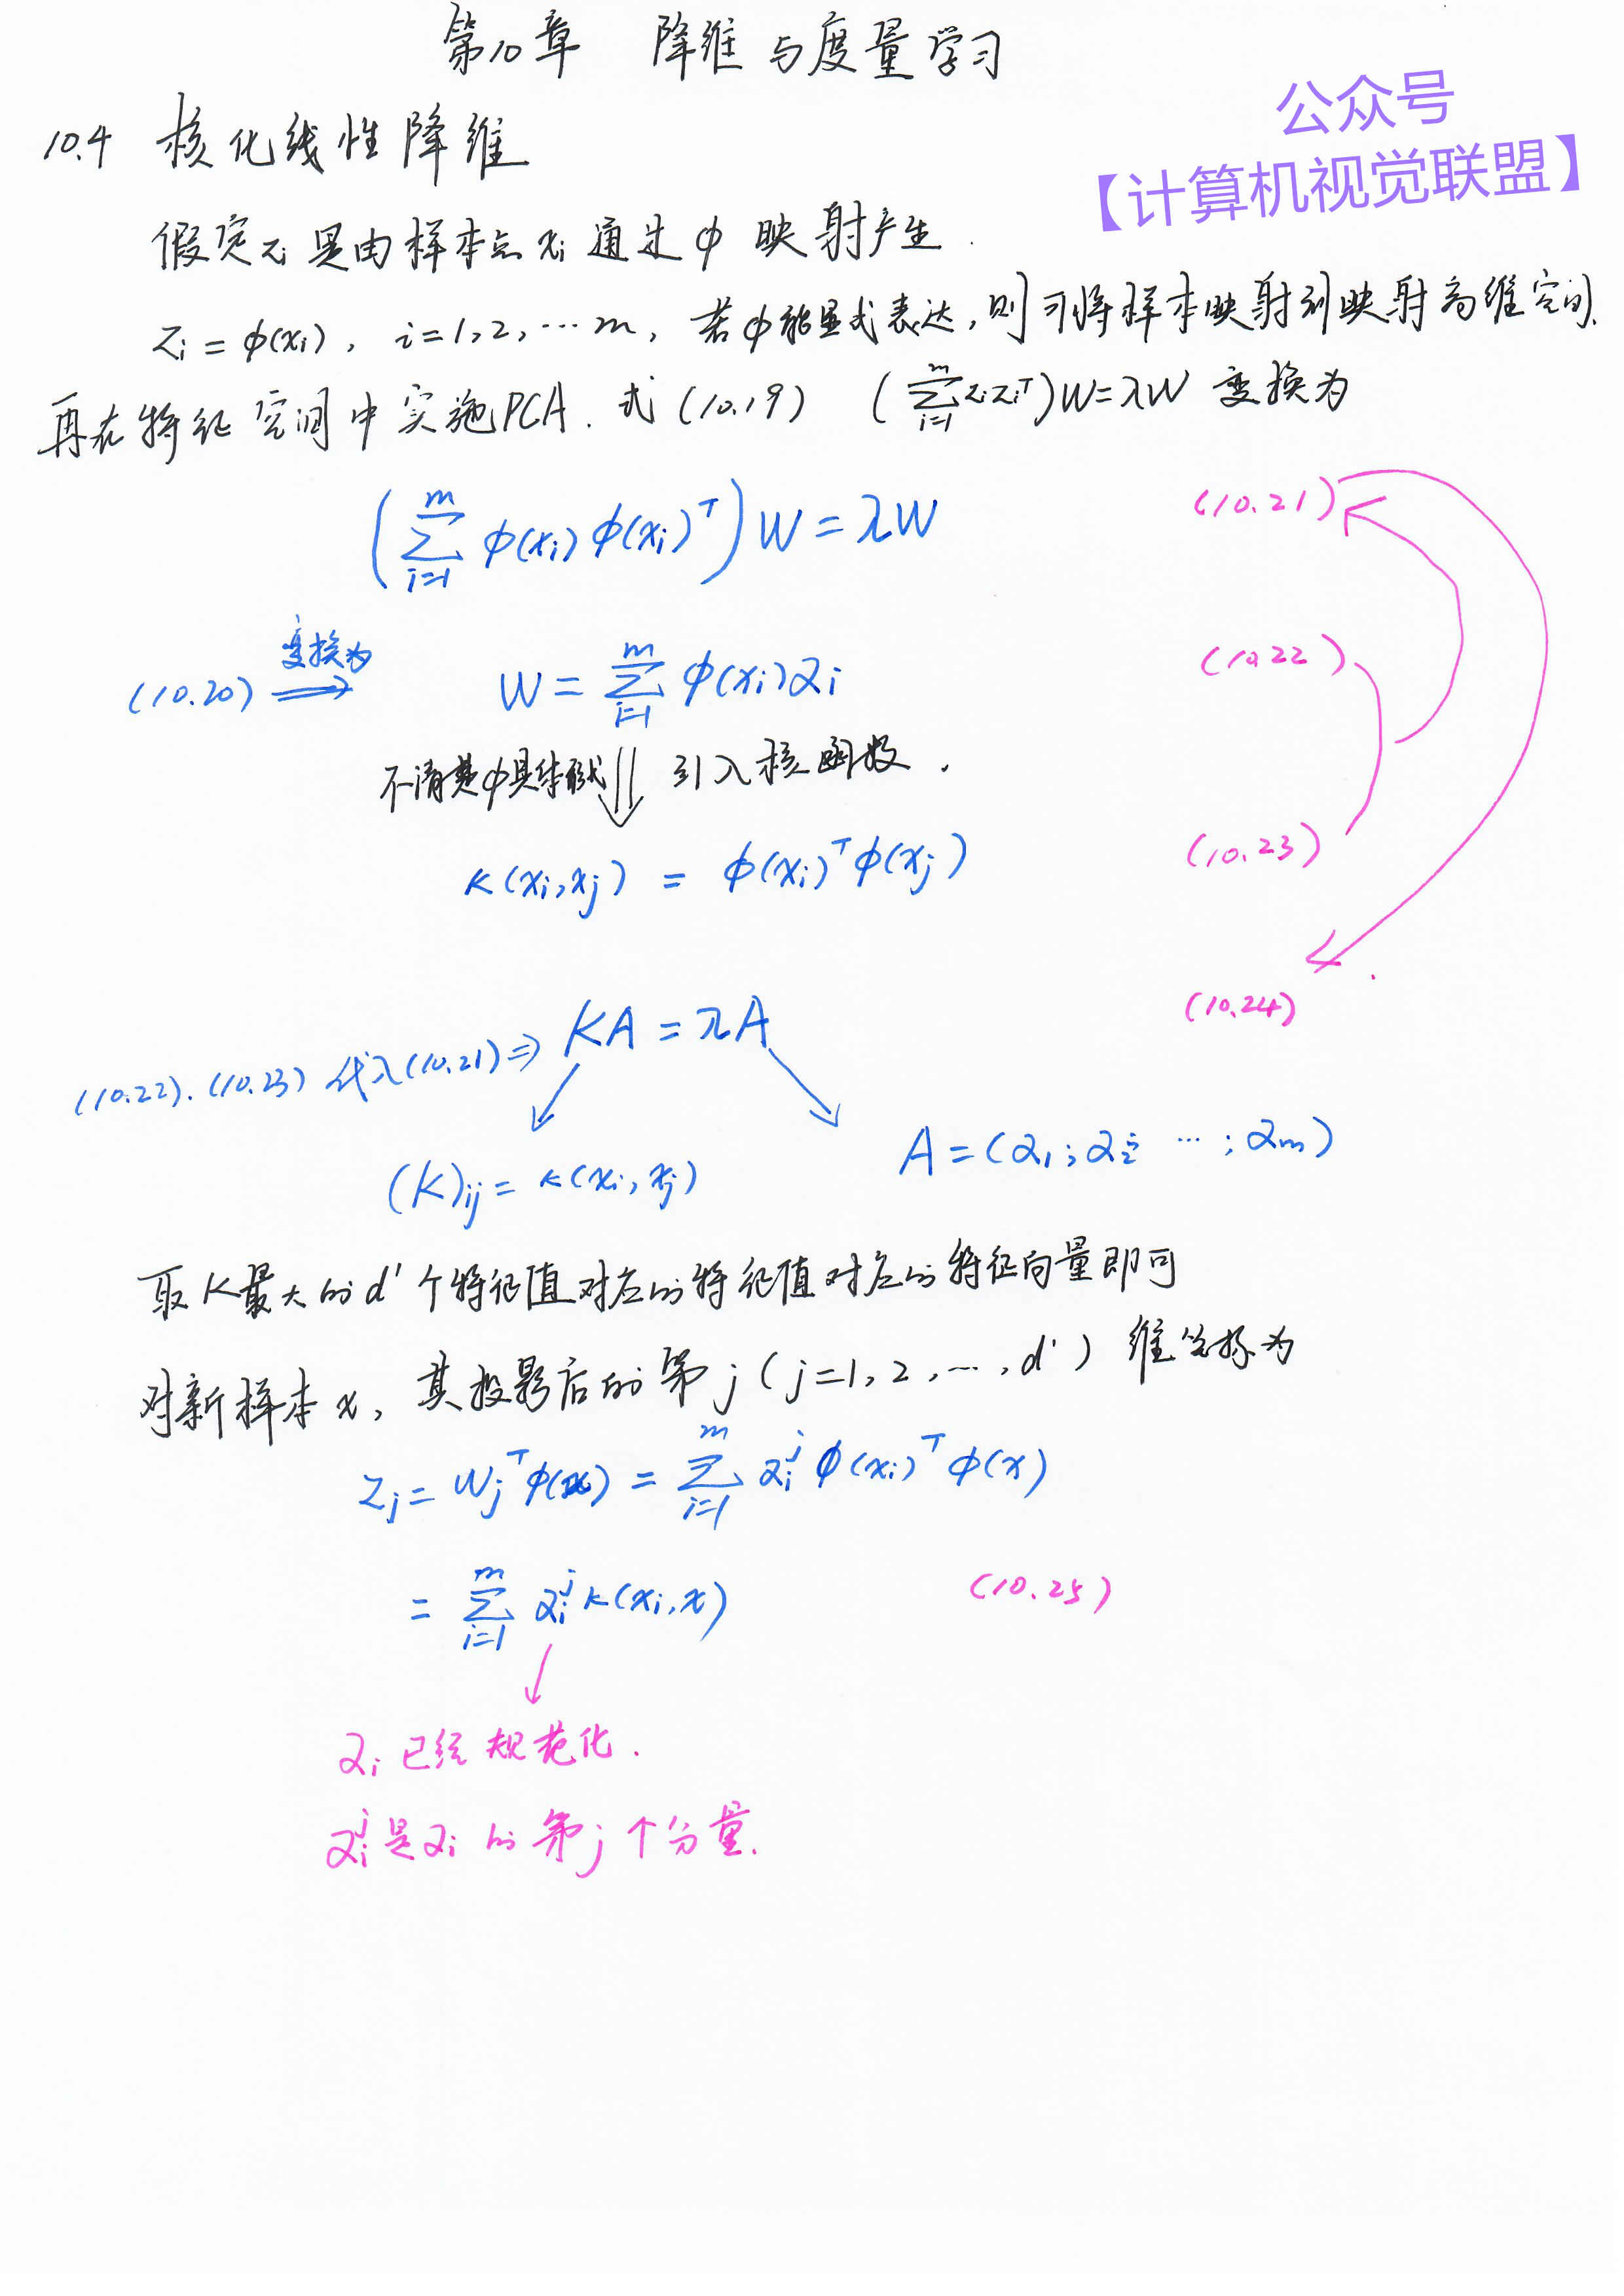 第10章 降维与度量学习
公众号
【计算机视觉联盟】
10.4 核化线性降维
假定zi是由样本点xi通过φ映射产生.
zi = φ(xi), i=1,2,…m, 若φ能显式表达,则可将样本映射到映射高维空间,
再在特征空间中实施PCA. 式(10.19) (∑_{i=1}^{m} zi zi^T)W=λW 变换为
(∑_{i=1}^{m} φ(xi) φ(xi)^T) W = λW (10.21)
(10.20) 变换为 ⟹ W = ∑_{i=1}^{m} φ(xi)αi (10.22)
不清楚φ具体形式 ⇓ 引入核函数.
κ(xi,xj) = φ(xi)^T φ(xj) (10.23)
(10.24)
(10.22).(10.23) 代入(10.21)⇒ KA = λA
(K)ij = κ(xi,xj) A=(α1;α2; …;αm)
取K最大的d'个特征值对应的特征值对应的特征向量即可
对新样本x, 其投影后的第j(j=1,2,…,d')维坐标为
zj = wj^T φ(x) = ∑_{i=1}^{m} αi^j φ(xi)^T φ(x)
= ∑_{i=1}^{m} αi^j κ(xi,x) (10.25)
αi 已经规范化.
αi^j是αi的第j个分量.